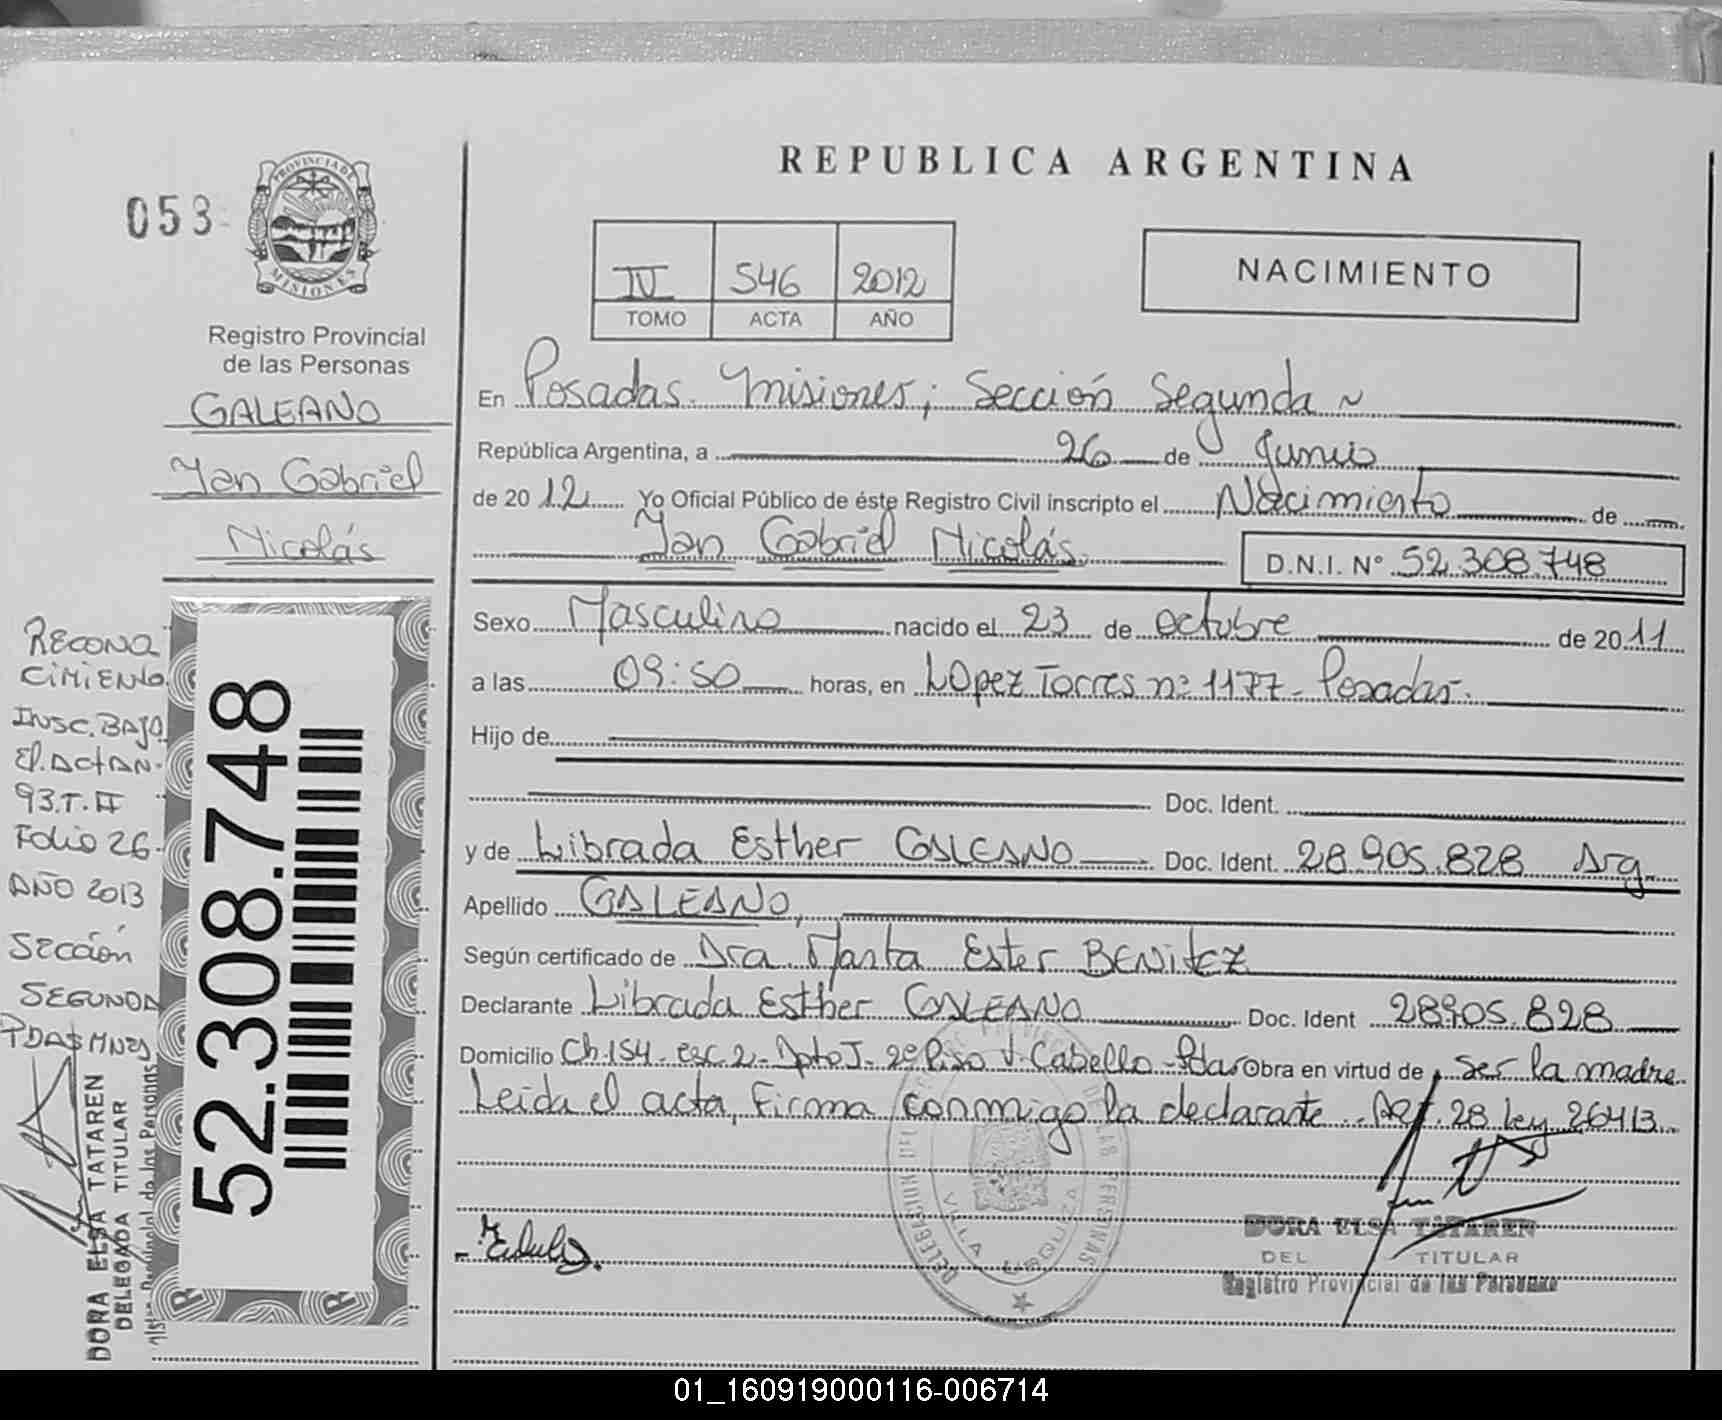 REPUBLICA ARGENTINA
053
PROVINCIA DE
MISIONES
Registro Provincial
de las Personas
GALEANO
Ian Gabriel
Nicolás
IV 546 2012
TOMO ACTA AÑO
NACIMIENTO
En Posadas. Misiones; Sección Segunda
República Argentina, a 26 de Junio
de 2012 Yo Oficial Público de éste Registro Civil inscripto el Nacimiento de
Ian Gabriel Nicolás.
D.N.I. Nº 52.308.748
Sexo Masculino nacido el 23 de octubre de 2011
a las 09:50 horas, en López Torres nº 1177 - Posadas.
Hijo de
Doc. Ident.
y de Librada Esther GALEANO Doc. Ident. 28.905.828 Arg.
Apellido GALEANO,
Según certificado de Dra. Marta Ester BENITEZ
Declarante Librada Esther GALEANO Doc. Ident 28905.828
Domicilio Ch.154. esc. 2 - Dpto J. 2º Piso V. Cabello - Pdas Obra en virtud de ser la madre.
Leida el acta, Firma conmigo la declarante. Art. 28 Ley 26413.
RECONO
CIMIENTO
INSC. BAJO
El. ACTA N-
93.T. II
Folio 26-
AÑO 2013
Sección
SEGUNDA
PDAS MNES
DORA ELSA TATAREN
DELEGADA TITULAR
Registro Provincial de las Personas
52.308.748
VILLA URQUIZA
DORA ELSA TATAREN
DEL TITULAR
Registro Provincial de las Personas
01_160919000116-006714